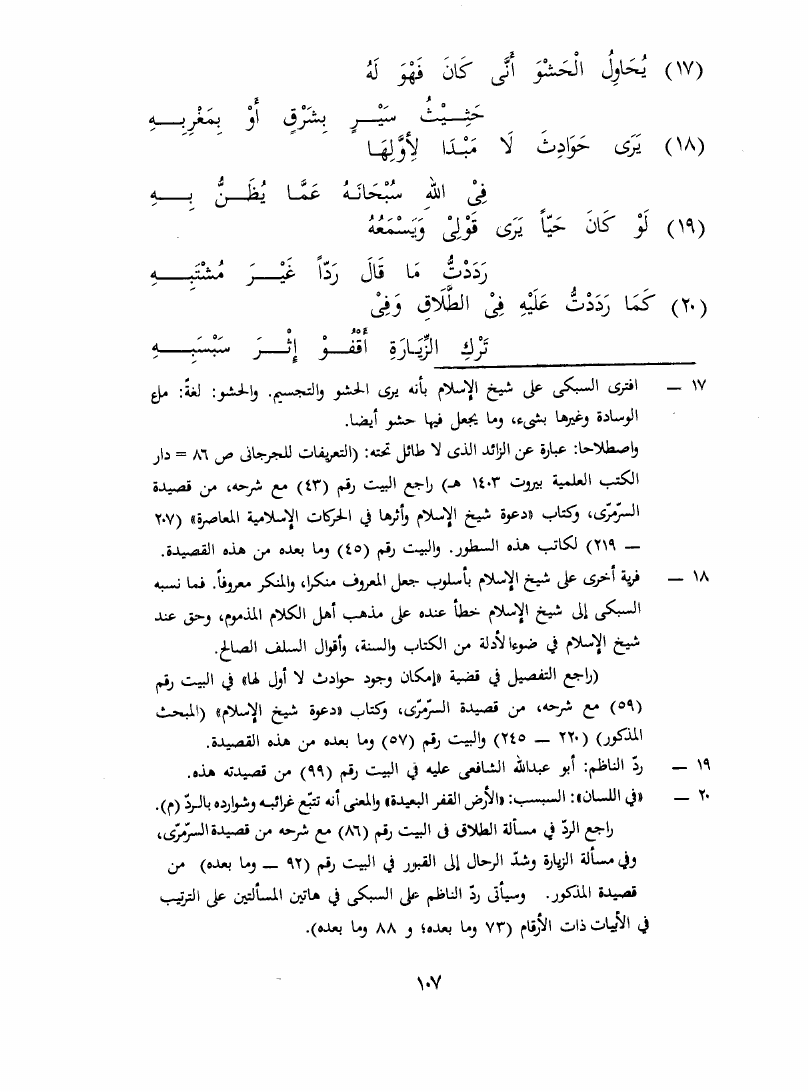 (١٧) يُحَاوِلُ الْحَشْوَ أَنَّى كَانَ فَهْوَ لَهُ
حَثِيْثُ سَيْــرٍ بِشَرْقٍ أَوْ بِمَغْرِبِــهِ
(١٨) يَرَى حَوَادِثَ لَا مَبْدَا لِأَوَّلِهَا
فِيْ اللهِ سُبْحَانَهُ عَمَّا يُظَــنُّ بِــهِ
(١٩) لَوْ كَانَ حَيّاً يَرَى قَوْلِيْ وَيَسْمَعُهُ
رَدَدْتُّ مَا قَالَ رَدّاً غَيْــرَ مُشْتَبِــهِ
(٢٠) كَمَا رَدَدْتُّ عَلَيْهِ فِيْ الطَّلَاقِ وَفِيْ
تَرْكِ الزِّيَارَةِ أَقْفُــوْ إِثْــرَ سَبْسَبِــهِ
١٧ — افترى السبكى على شيخ الإسلام بأنه يرى الحشو والتجسيم. والحشو: لغةً: ملء
الوسادة وغيرها بشىء، وما يجعل فيها حشو أيضا.
واصطلاحا: عبارة عن الزائد الذى لا طائل تحته: (التعريفات للجرجانى ص ٨٦ = دار
الكتب العلمية بيروت ١٤٠٣ هـ) راجع البيت رقم (٤٣) مع شرحه، من قصيدة
السرّمرّى، وكتاب «دعوة شيخ الإسلام وأثرها في الحركات الإسلامية المعاصرة» (٢٠٧
— ٢١٩) لكاتب هذه السطور. والبيت رقم (٤٥) وما بعده من هذه القصيدة.
١٨ — فرية أخرى على شيخ الإسلام بأسلوب جعل المعروف منكرا، والمنكر معروفاً. فما نسبه
السبكى إلى شيخ الإسلام خطأ عنده على مذهب أهل الكلام المذموم، وحق عند
شيخ الإسلام في ضوءالأدلة من الكتاب والسنة، وأقوال السلف الصالح.
(راجع التفصيل في قضية «إمكان وجود حوادث لا أول لها» في البيت رقم
(٥٩) مع شرحه، من قصيدة السرّمرّى، وكتاب «دعوة شيخ الإسلام» (المبحث
المذكور) (٢٢٠ — ٢٤٥) والبيت رقم (٥٧) وما بعده من هذه القصيدة.
١٩ — ردّ الناظم: أبو عبدالله الشافعى عليه في البيت رقم (٩٩) من قصيدته هذه.
٢٠ — «في اللسان»: السبسب: «الأرض القفر البعيدة» والمعنى أنه تتبّع غرائبه وشوارده بالردّ (م).
راجع الردّ في مسألة الطلاق فى البيت رقم (٨٦) مع شرحه من قصيدة السرّمرّى،
وفي مسألة الزيارة وشدّ الرحال إلى القبور في البيت رقم (٩٢ — وما بعده) من
قصيدة المذكور. وسيأتى ردّ الناظم على السبكى في هاتين المسألتين على الترتيب
في الأبيات ذات الأرقام (٧٣ وما بعده؛ و ٨٨ وما بعده).
١٠٧